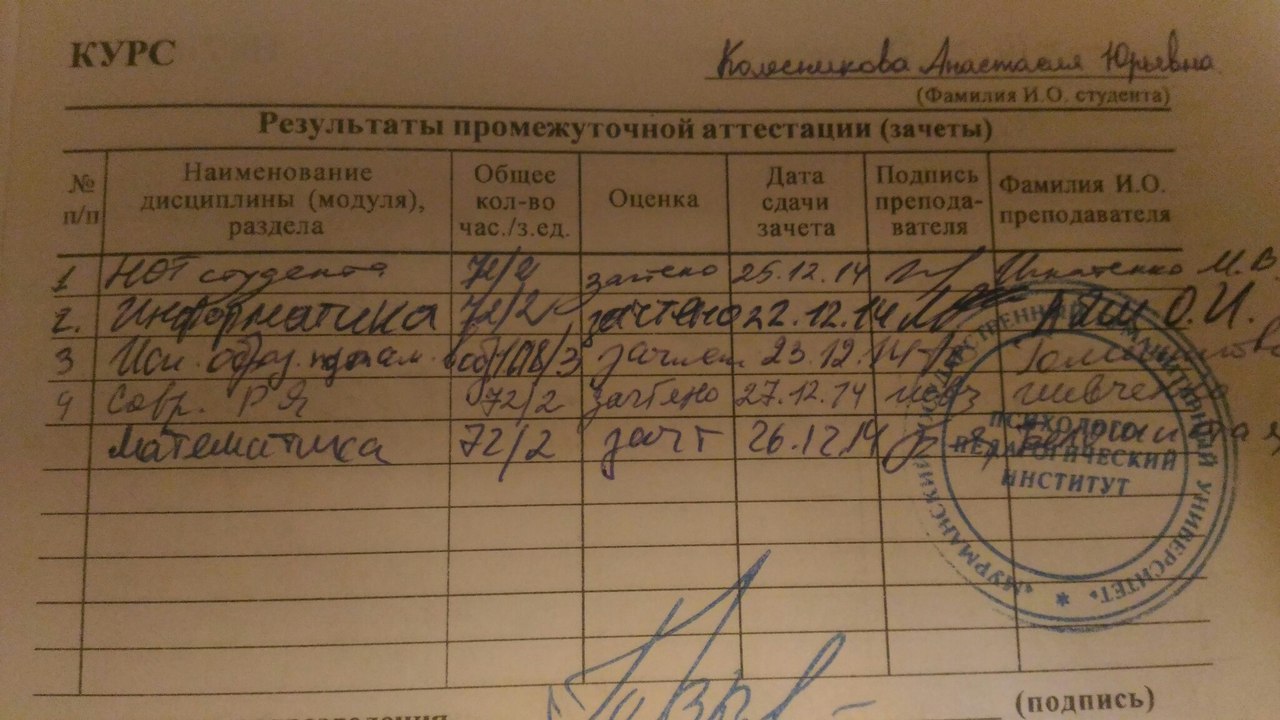 КУРС
Колесникова Анастасия Юрьевна
(Фамилия И.О. студента)
Результаты промежуточной аттестации (зачеты)
№ п/п Наименование дисциплины (модуля), раздела Общее кол-во час./з.ед. Оценка Дата сдачи зачета Подпись препода-вателя Фамилия И.О. преподавателя
1 НОТ студента 72/2 зачтено 25.12.14 Игнатенко М.В
2. Информатика 72/2 зачтено 22.12.14 О.И.
3 Исп. 108/3 зачтено 23.12.14
4 Совр. РЯ 72/2 зачтено 27.12.14
Математика 72/2 зачт 26.12.14
ПСИХОЛОГО-
ПЕДАГОГИЧЕСКИЙ
ИНСТИТУТ
«МУРМАНСКИЙ ГОСУДАРСТВЕННЫЙ ГУМАНИТАРНЫЙ УНИВЕРСИТЕТ»
(подпись)